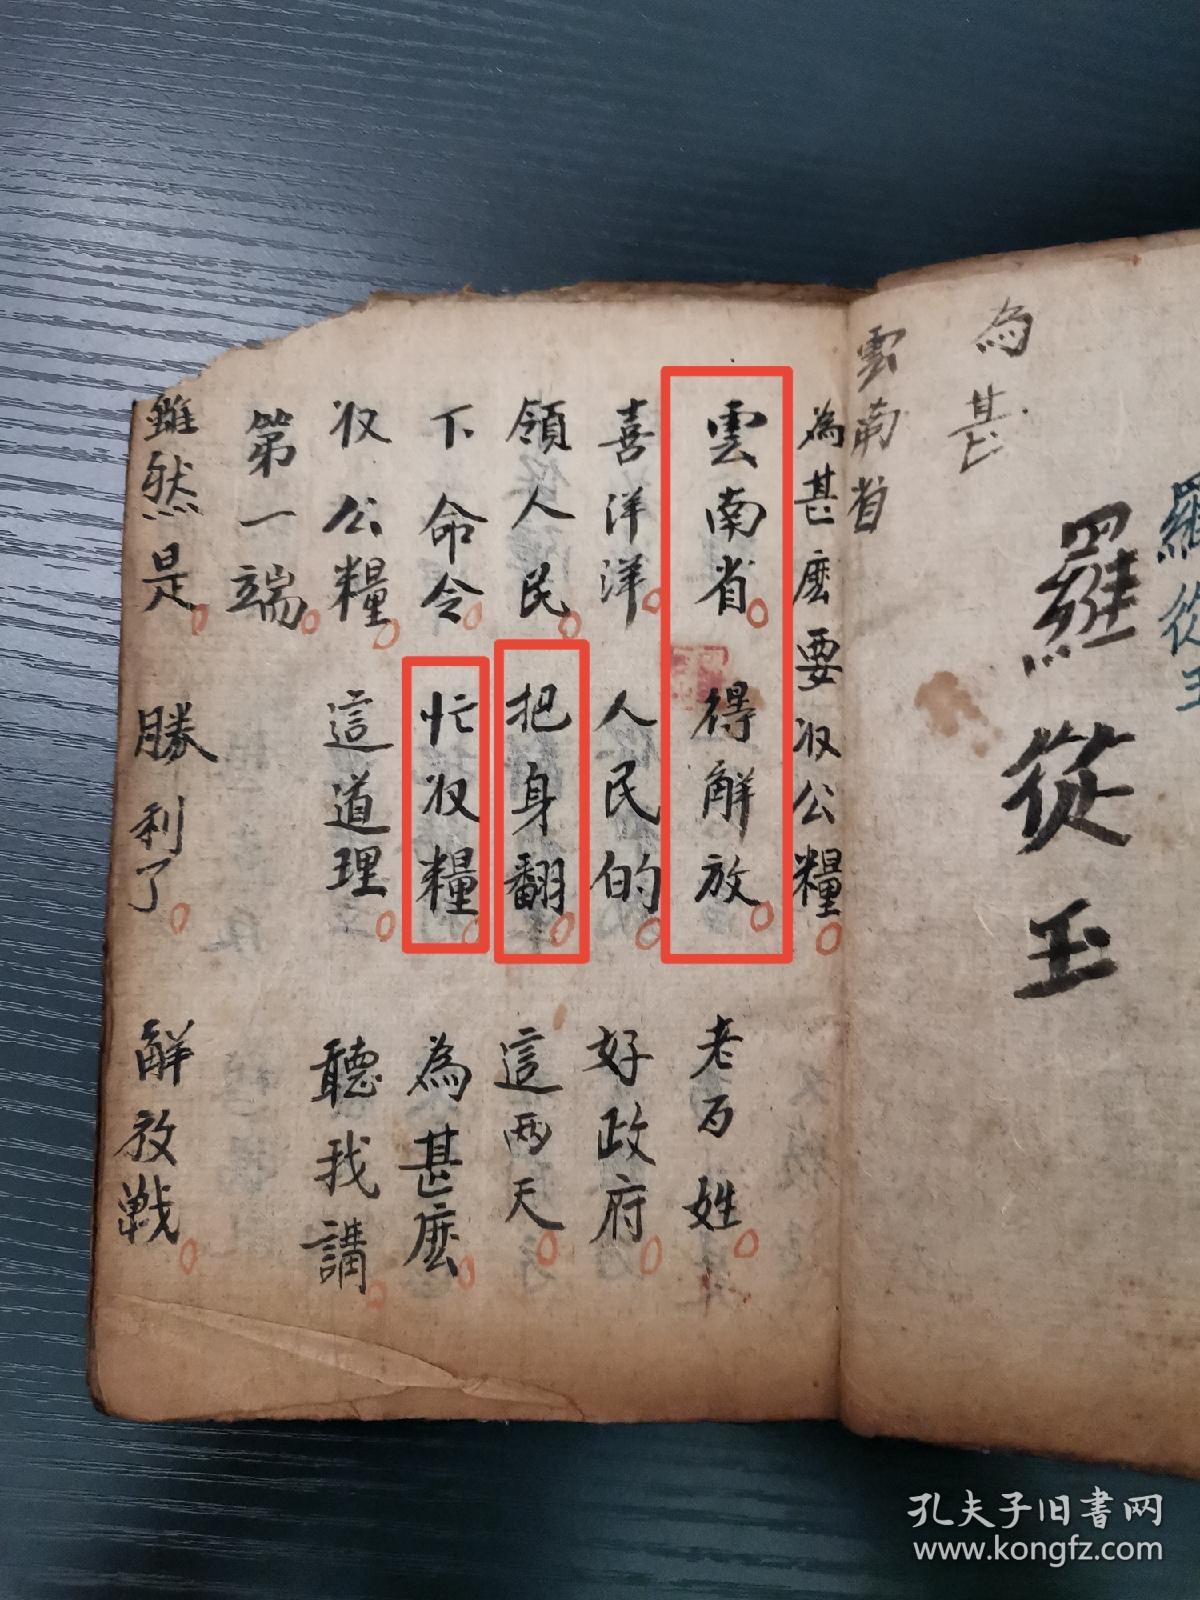 羅從玉
為甚
羅從玉
雲南省
為甚麽要収公糧
雲南省 得解放 老百姓
喜洋洋 人民的 好政府
領人民 把身翻 這兩天
下命令 忙収糧 為甚麽
収公糧 這道理 聽我講
第一端
雖然是 勝利了 解放戰
孔夫子旧书网
www.kongfz.com